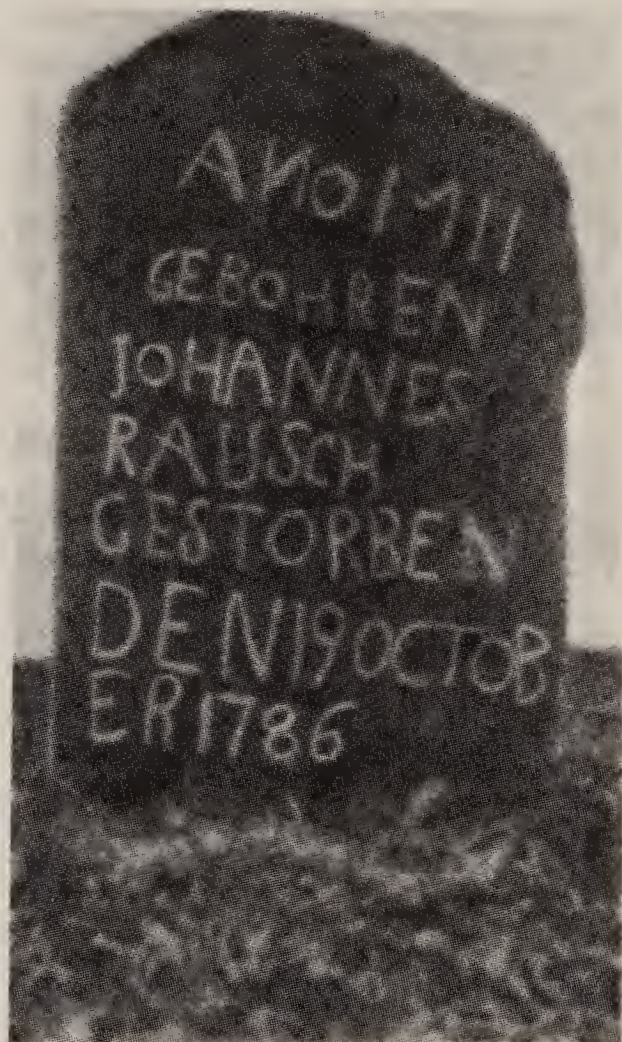 ANO 1711
GEBOHREN
IOHANNES
RAUSCH
GESTORBEN
DEN 19 OCTOB
ER 1786